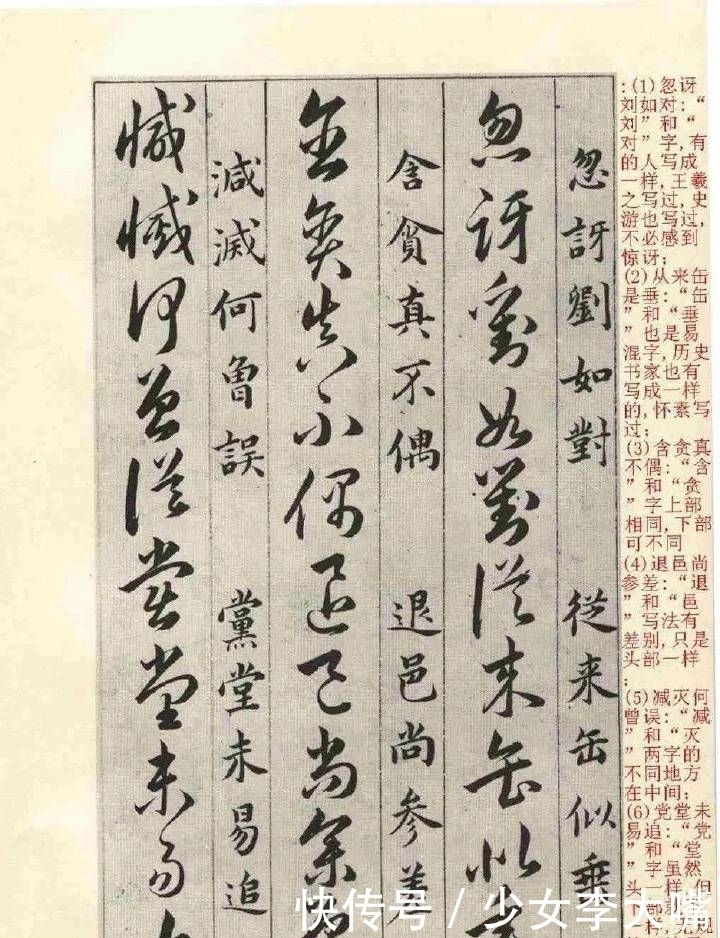 忽訝劉如對 從来缶似垂
忽訝劉如對從来缶似
含貪真不偶 退邑尚参差
含貪真不偶退邑尚参
減滅何曾誤 黨堂未易追
減滅何曾從黨堂未易
:(1)忽讶
刘如对:“
刘”和“
对”字,有
的人写成
一样,王羲
之写过,史
游也写过,
不必感到
惊讶;
(2)从来缶
是垂:“缶
”和“垂
”也是易
混字,历史
书家也有
写成一样
的,怀素写
过;
(3)含贪真
不偶:“含
”和“贪
”字上部
相同,下部
可不同
(4)退邑尚
参差:“退
”和“邑
”写法有
差别,只是
头部一样
;
(5)减灭何
曾误:“减
”和“灭
”两字的
不同地方
在中间;
(6)党堂未
易追:“党
”和“堂
”字虽然
头一样,但
快传号/少女李大嘴